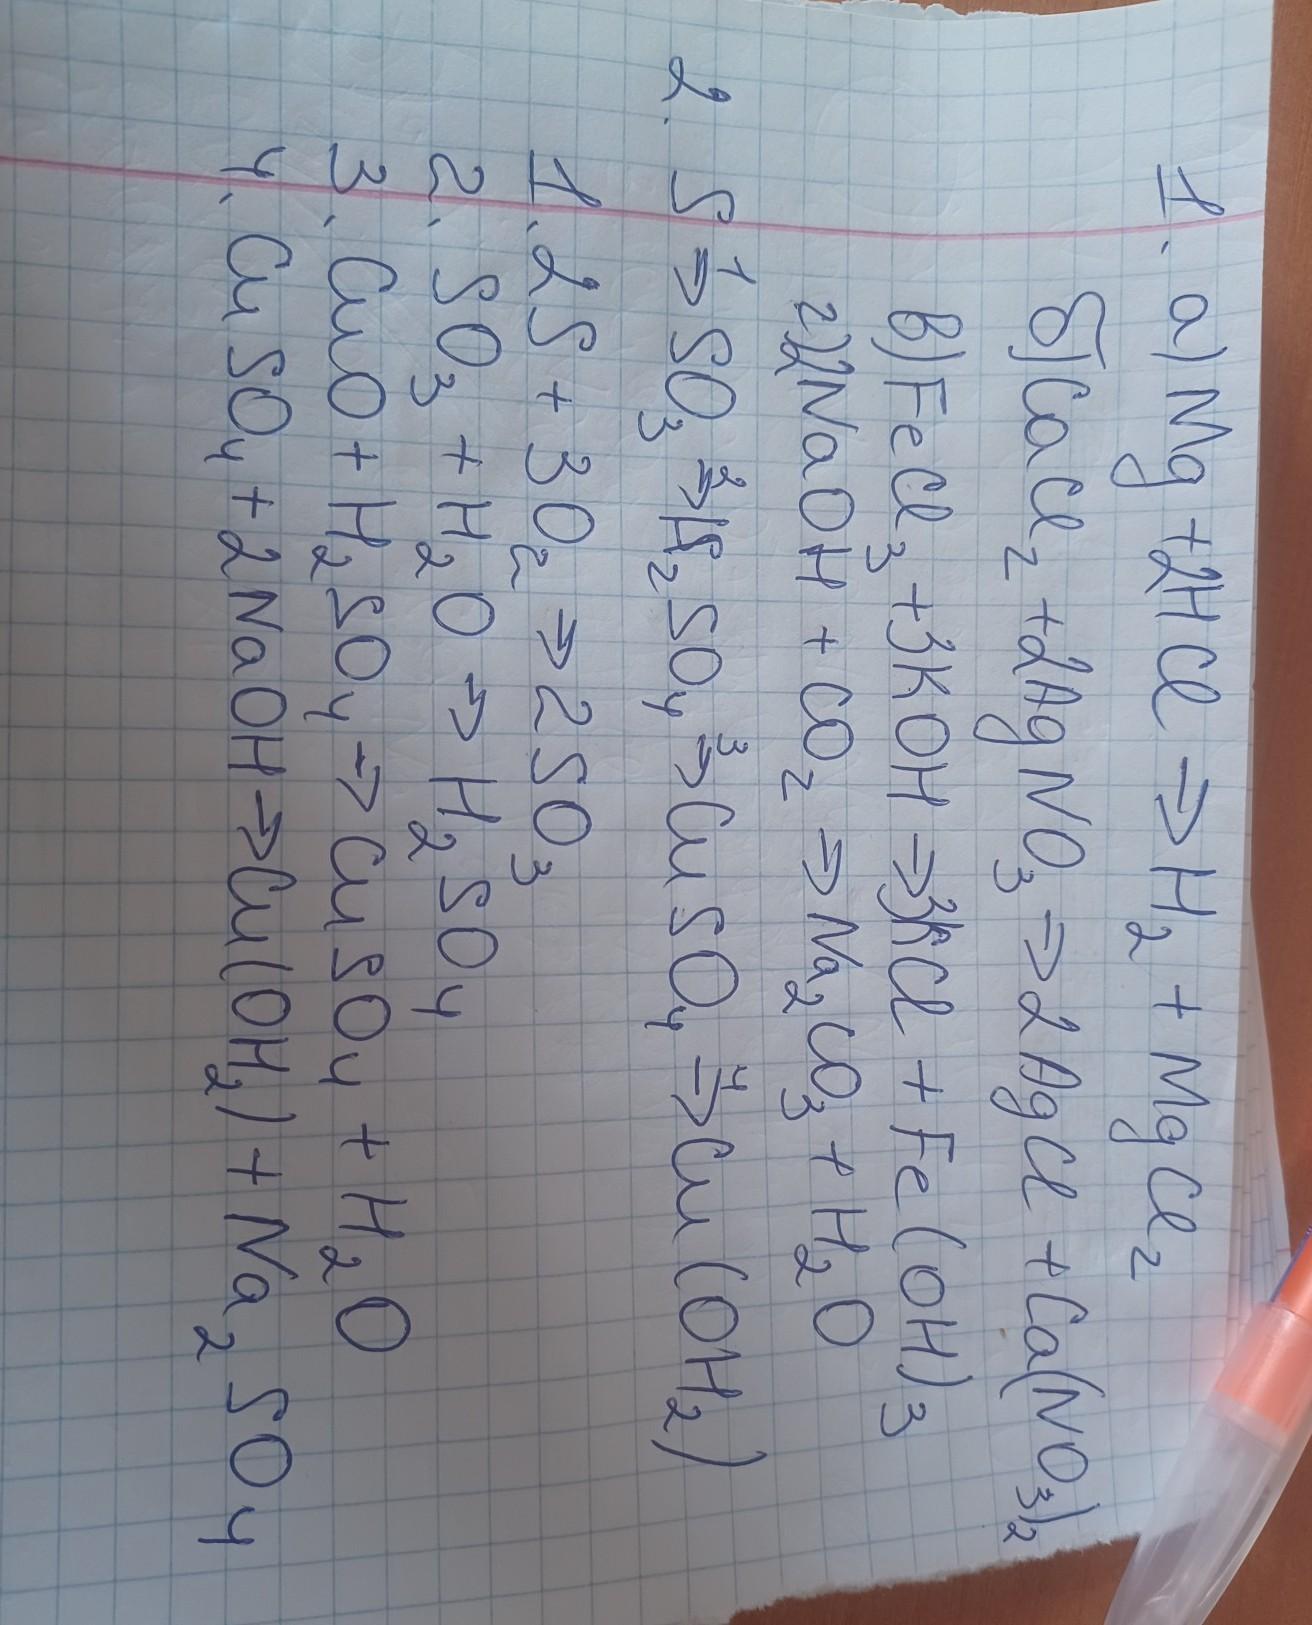 1. а) Mg + 2HCl → H₂ + MgCl₂
б) CaCl₂ + 2AgNO₃ → 2AgCl + Ca(NO₃)₂
в) FeCl₃ + 3KOH → 3KCl + Fe(OH)₃
г) 2NaOH + CO₂ → Na₂CO₃ + H₂O
2. S →¹ SO₃ →² H₂SO₄ →³ CuSO₄ →⁴ Cu(OH₂)
1. 2S + 3O₂ → 2SO₃
2. SO₃ + H₂O → H₂SO₄
3. CuO + H₂SO₄ → CuSO₄ + H₂O
4. CuSO₄ + 2NaOH → Cu(OH₂) + Na₂SO₄